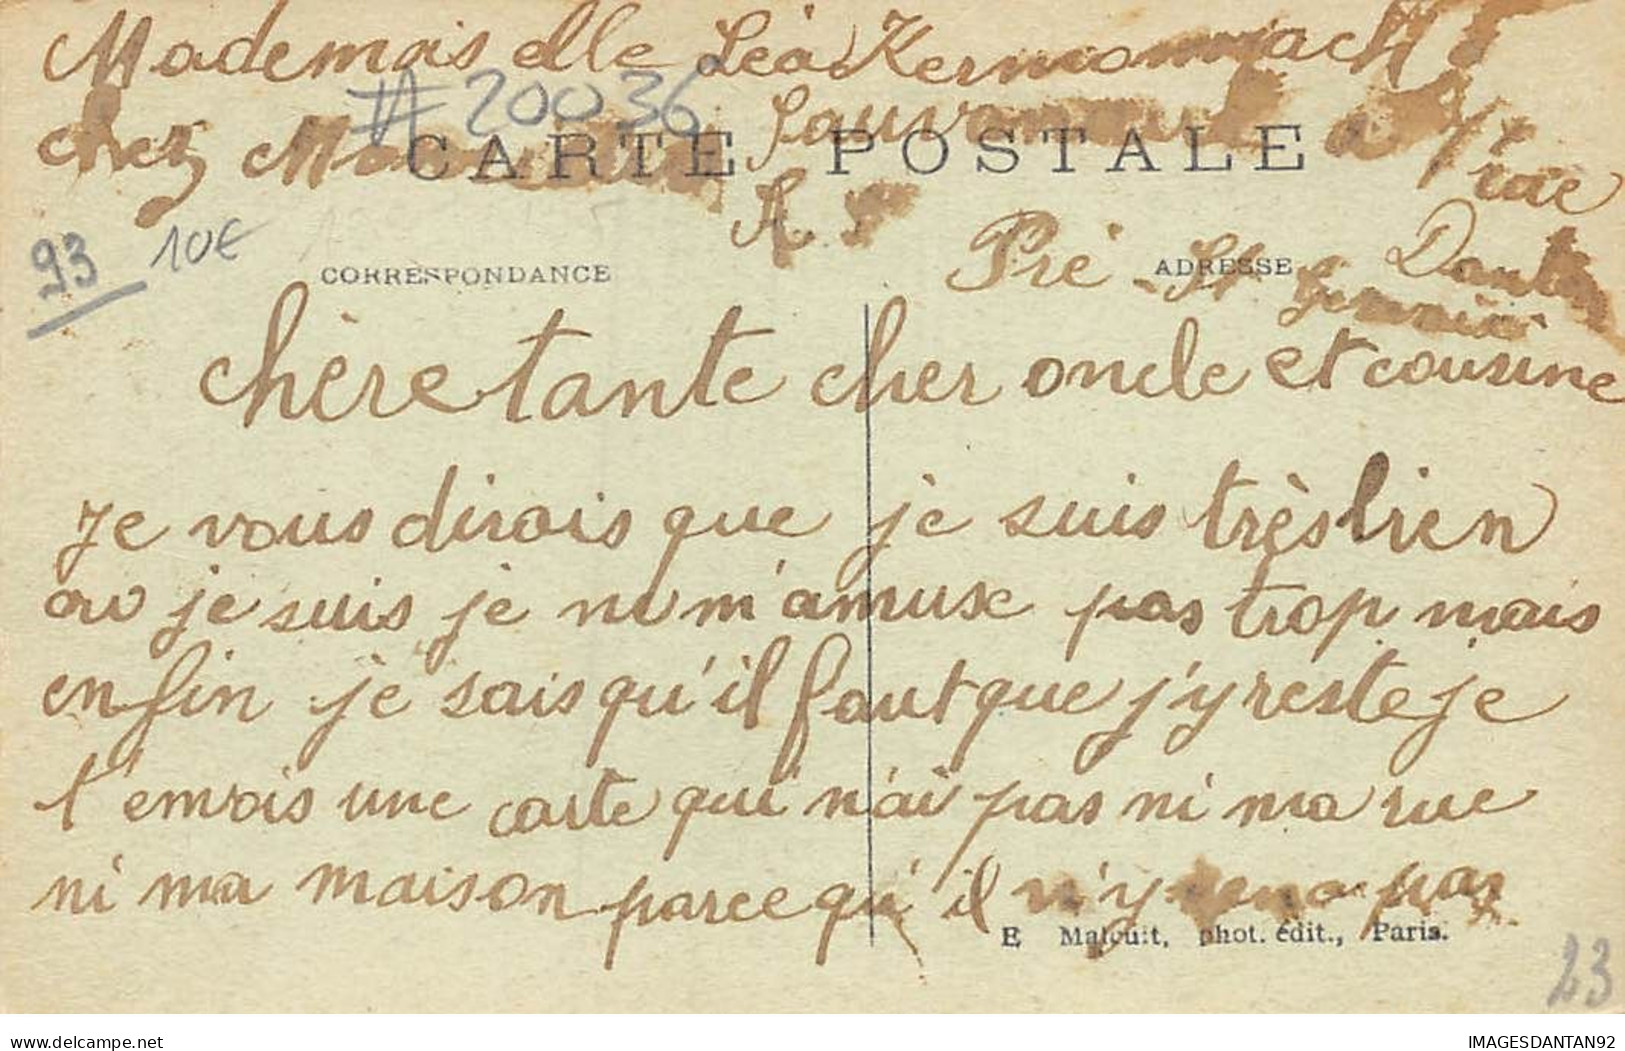 Mademoiselle Léa
# 20036
chez
CARTE POSTALE
93 10€
Pré St Germain
CORRESPONDANCE
ADRESSE
chère tante cher oncle et cousine
Je vous dirais que je suis très bien
ou je suis je ne m'amuse pas trop mais
enfin je sais qu'il faut que j'y reste je
t'envois une carte qui n'ai pas ni ma rue
ni ma maison parce qu'il n'y pas
E Malcuit, phot. édit., Paris.
23
delcampe.net
IMAGESDANTAN92